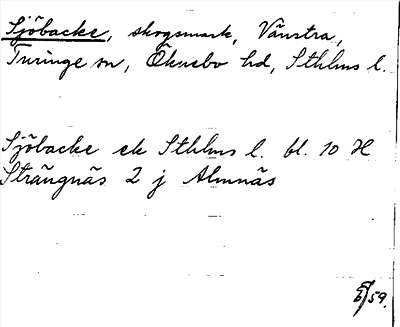 Sjöbacke, skogsmark, Vänstra,
Turinge sn, Öknebo hd, Sthlms l.
Sjöbacke ek Sthlms l. bl. 10 H
Strängnäs 2 j Almnäs
59.